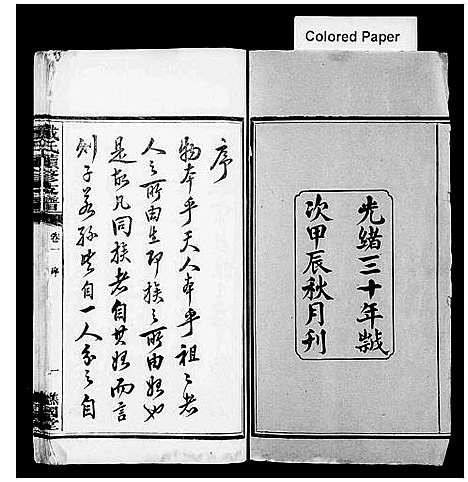 Colored Paper
光緒三十年歲
次甲辰秋月刊
序
物本乎天人本乎祖祖者
人之所由生即族之所由始也
是故凡同族者自其始而言
則子若孫皆自一人分之自
戴氏續修支譜
卷一 序
一
譙國堂